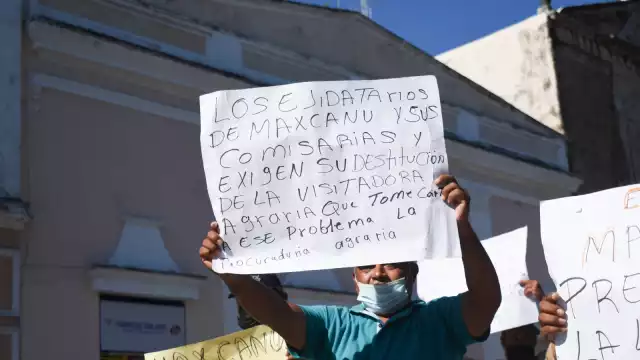 LOS EJIDATArios
DE MAXCANU Y SUS
COMISARIAS Y
EXIGEN SU DESTITUCIÓN
DE LA VISITADORA
AgrariA QUE TOME
A ESE Problema LA
Procuraduria agraria
MAXCANU
MA
PRE
LA